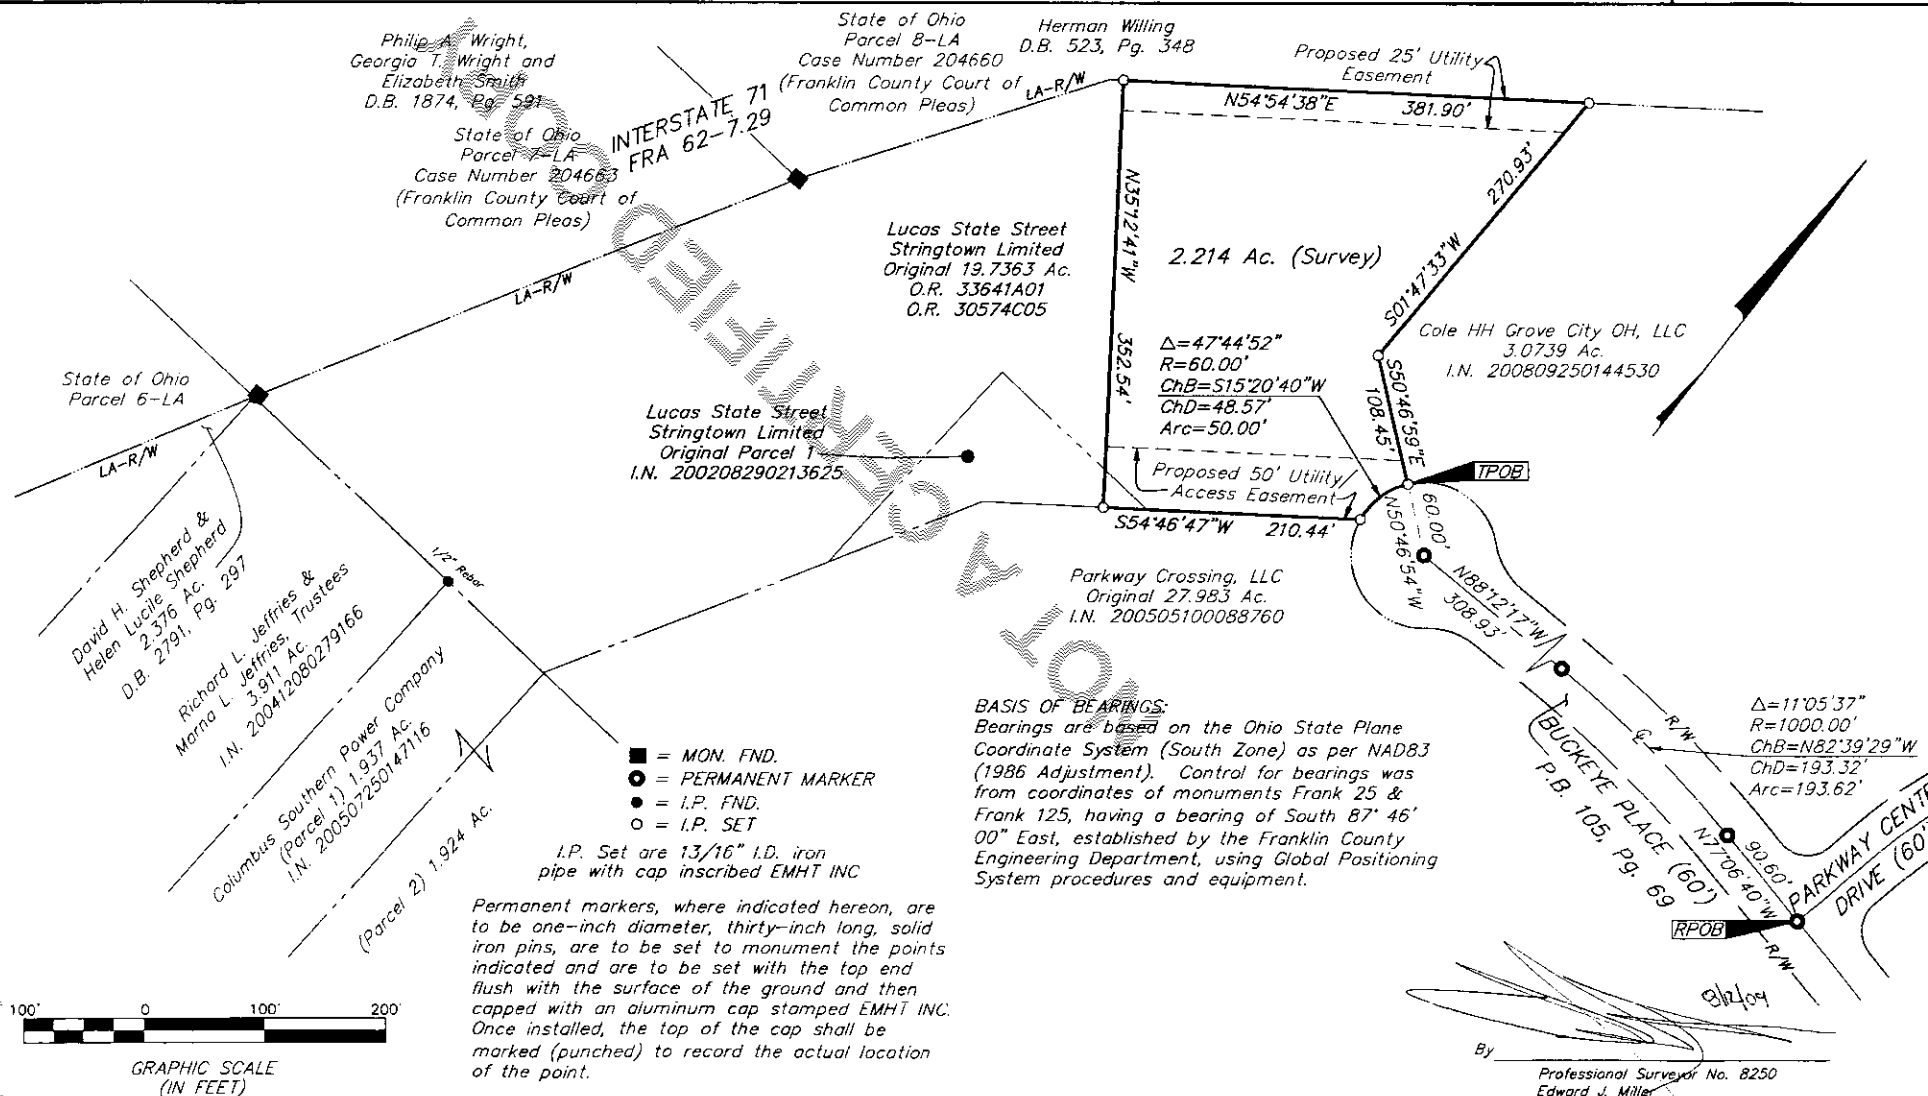 Philip A. Wright,
Georgia T. Wright and
Elizabeth Smith
D.B. 1874, Pg. 591
State of Ohio
Parcel 7-LA
Case Number 204663
(Franklin County Court of
Common Pleas)
INTERSTATE 71
FRA 62-7.29
State of Ohio
Parcel 8-LA
Case Number 204660
(Franklin County Court of
Common Pleas)
LA-R/W
Herman Willing
D.B. 523, Pg. 348
Proposed 25' Utility
Easement
N54°54'38"E 381.90'
270.93'
S01°47'33"W
N35°12'41"W
352.54'
2.214 Ac. (Survey)
Lucas State Street
Stringtown Limited
Original 19.7363 Ac.
O.R. 33641A01
O.R. 30574C05
Cole HH Grove City OH, LLC
3.0739 Ac.
I.N. 200809250144530
Δ=47°44'52"
R=60.00'
ChB=S15°20'40"W
ChD=48.57'
Arc=50.00'
S50°46'59"E
108.45'
LA-R/W
State of Ohio
Parcel 6-LA
LA-R/W
Lucas State Street
Stringtown Limited
Original Parcel 1
I.N. 200208290213625
Proposed 50' Utility/
Access Easement
TPOB
S54°46'47"W 210.44'
60.00'
N50°46'54"W
N88°12'17"W
308.93'
Parkway Crossing, LLC
Original 27.983 Ac.
I.N. 200505100088760
1/2" Rebar
David H. Shepherd &
Helen Lucile Shepherd
2.376 Ac.
D.B. 2791, Pg. 297
Richard L. Jeffries &
Marna L. Jeffries, Trustees
3.911 Ac.
I.N. 200412080279166
Columbus Southern Power Company
(Parcel 1) 1.937 Ac.
I.N. 200507250147116
(Parcel 2) 1.924 Ac.
NOT A CERTIFIED COPY
■ = MON. FND.
= PERMANENT MARKER
● = I.P. FND.
○ = I.P. SET
I.P. Set are 13/16" I.D. iron
pipe with cap inscribed EMHT INC
Permanent markers, where indicated hereon, are
to be one-inch diameter, thirty-inch long, solid
iron pins, are to be set to monument the points
indicated and are to be set with the top end
flush with the surface of the ground and then
capped with an aluminum cap stamped EMHT INC.
Once installed, the top of the cap shall be
marked (punched) to record the actual location
of the point.
BASIS OF BEARINGS:
Bearings are based on the Ohio State Plane
Coordinate System (South Zone) as per NAD83
(1986 Adjustment). Control for bearings was
from coordinates of monuments Frank 25 &
Frank 125, having a bearing of South 87° 46'
00" East, established by the Franklin County
Engineering Department, using Global Positioning
System procedures and equipment.
Δ=11°05'37"
R=1000.00'
ChB=N82°39'29"W
ChD=193.32'
Arc=193.62'
R/W
BUCKEYE PLACE (60')
P.B. 105, Pg. 69
90.60'
N77°06'40"W
PARKWAY CENTR
DRIVE (60'
RPOB
R/W
100' 0 100' 200'
GRAPHIC SCALE
(IN FEET)
8/12/09
By
Professional Surveyor No. 8250
Edward J. Miller